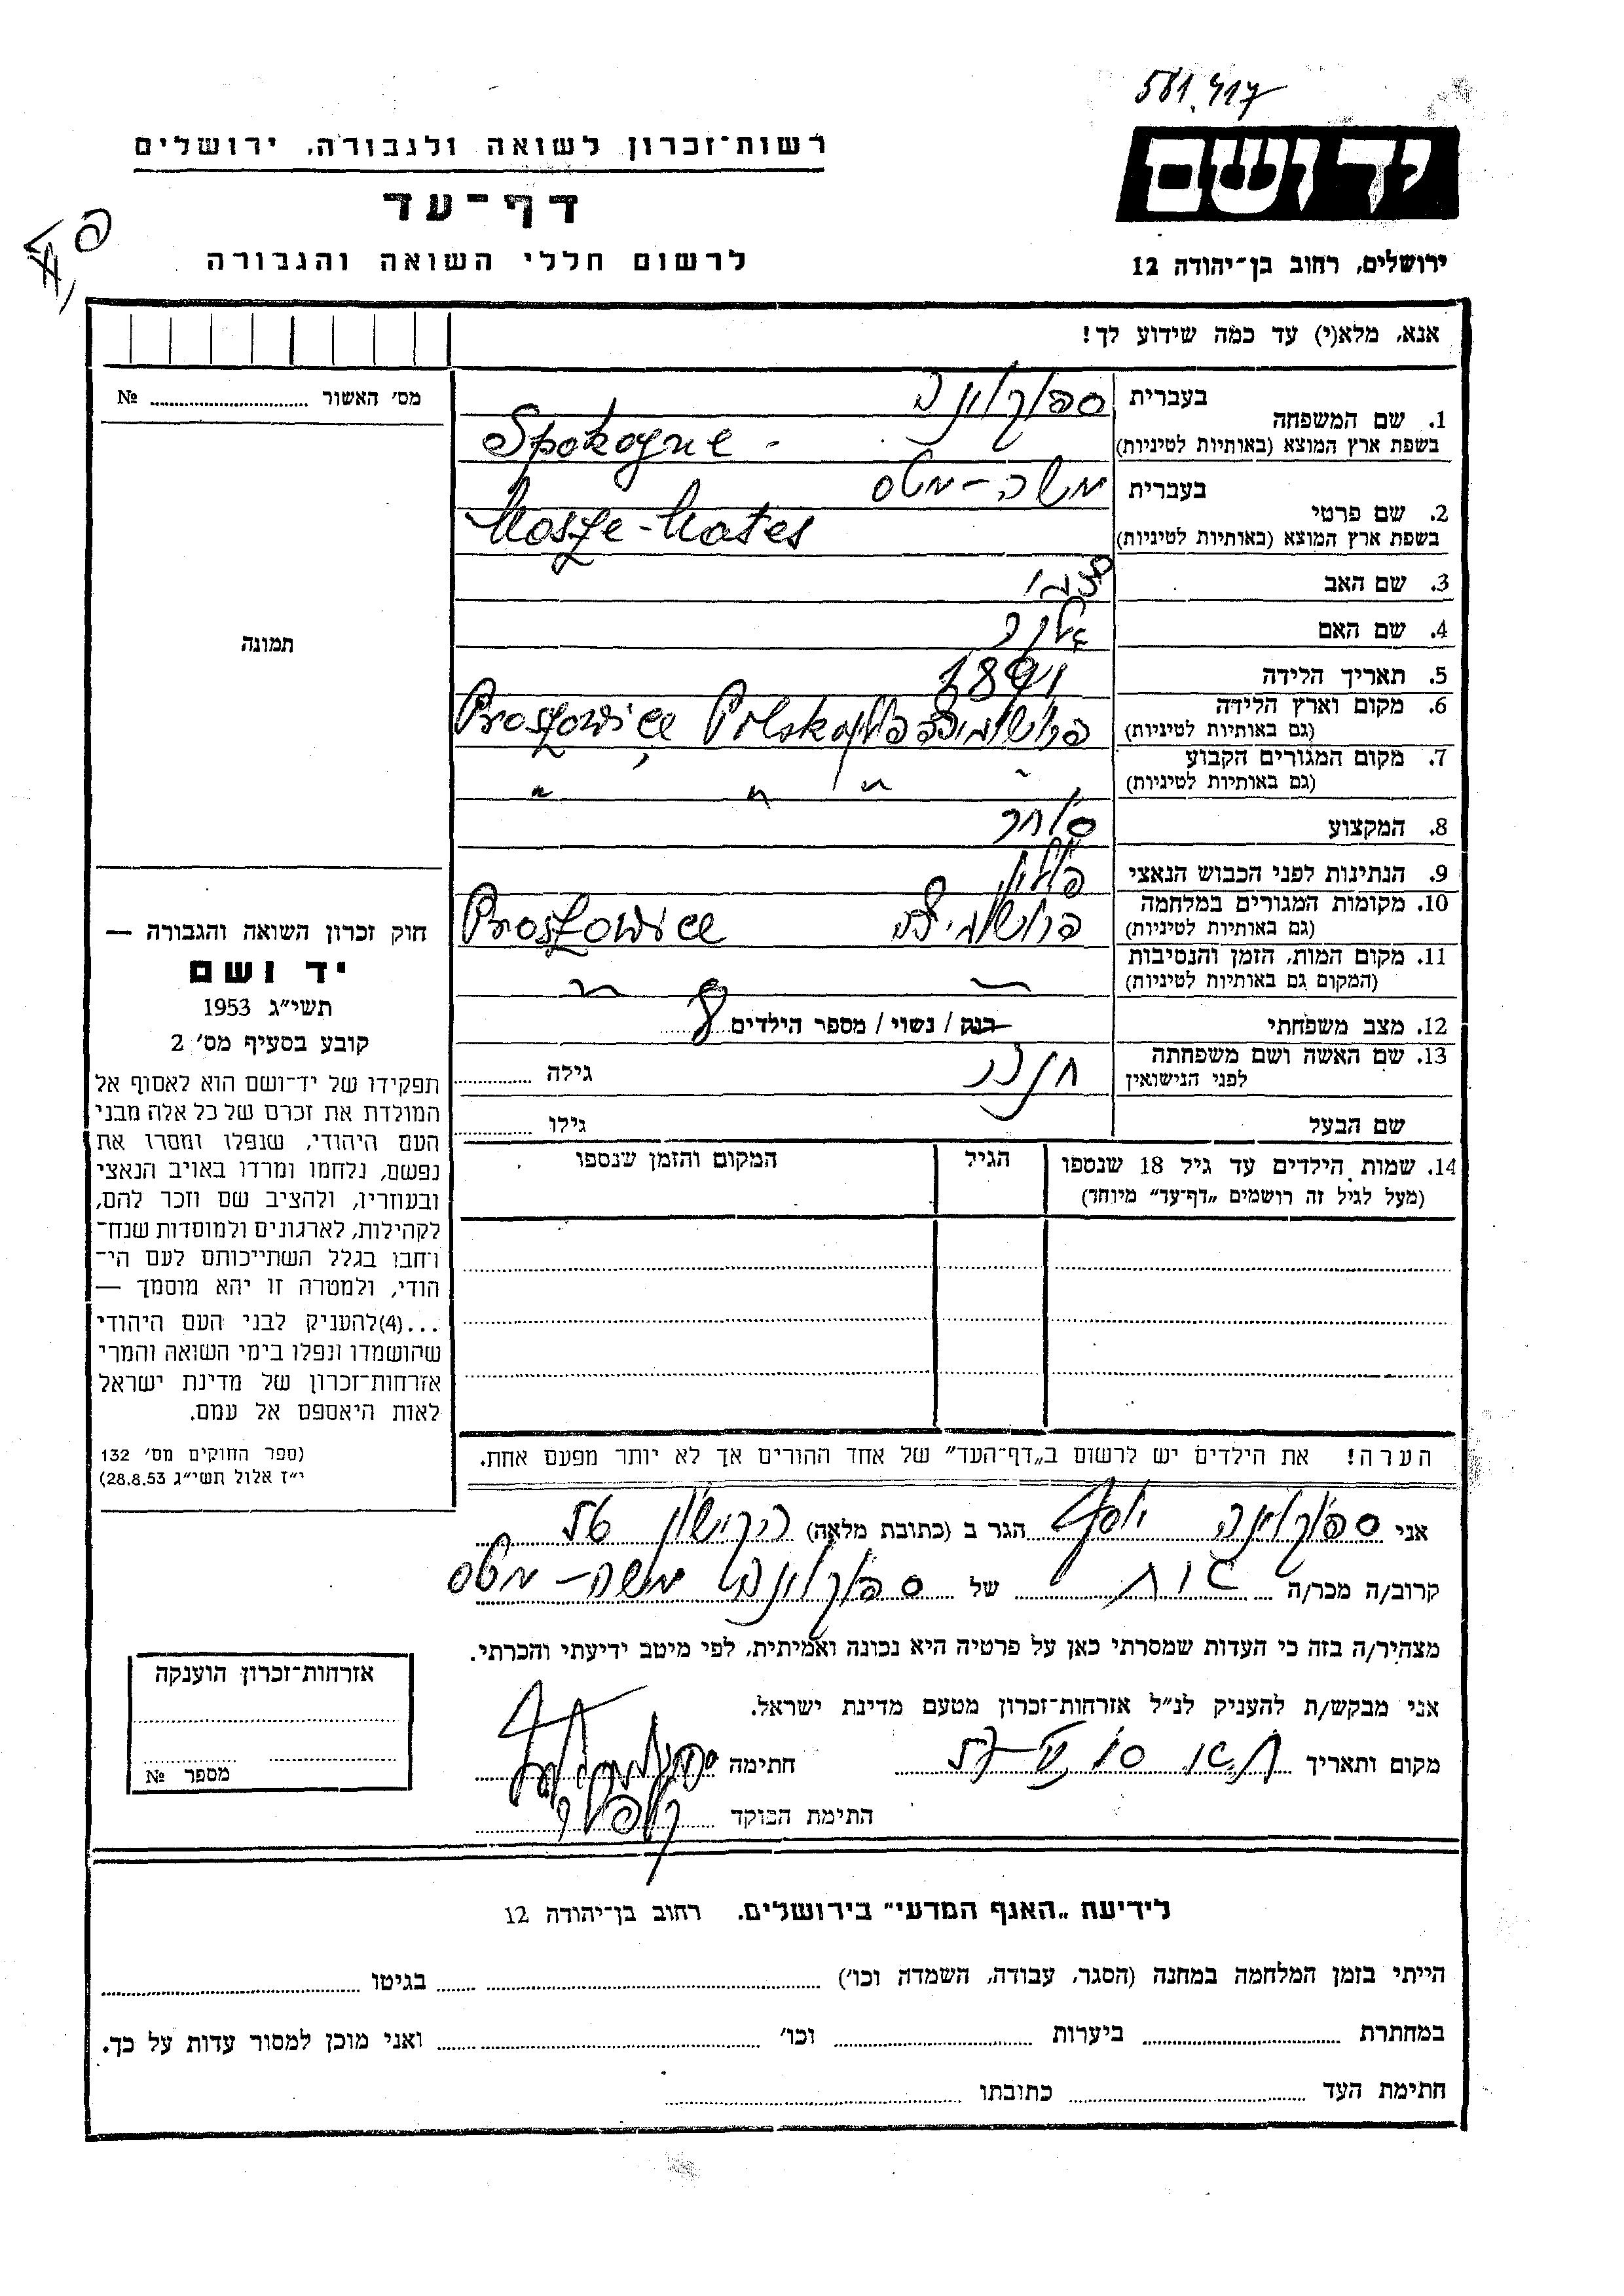 581.417
יד ושם
רשות־זכרון לשואה ולגבורה, ירושלים
דף־עד
לרשום חללי השואה והגבורה
ירושלים, רחוב בן־יהודה 12
אנא, מלא(י) עד כמה שידוע לך!
מס׳ האשור № 
תמונה
1. שם המשפחה בעברית ספוקוינה
בשפת ארץ המוצא (באותיות לטיניות) Spokogne
2. שם פרטי בעברית משה-מטס
בשפת ארץ המוצא (באותיות לטיניות) Mosze-Mates
3. שם האב
4. שם האם
5. תאריך הלידה 1891
6. מקום וארץ הלידה (גם באותיות לטיניות) Proszowice Polska
7. מקום המגורים הקבוע (גם באותיות לטיניות) " " " "
8. המקצוע סוחר
9. הנתינות לפני הכבוש הנאצי פולין
10. מקומות המגורים במלחמה (גם באותיות לטיניות) Proszowice
11. מקום המות, הזמן והנסיבות (המקום גם באותיות לטיניות)
12. מצב משפחתי רנק / נשוי / מספר הילדים 8
13. שם האשה ושם משפחתה לפני הנישואין גילה
שם הבעל גילו
14. שמות הילדים עד גיל 18 שנספו (מעל לגיל זה רושמים „דף־עד” מיוחד) הגיל המקום והזמן שנספו
חוק זכרון השואה והגבורה —
יד ושם
תשי״ג 1953
קובע בסעיף מס׳ 2
תפקידו של יד־ושם הוא לאסוף אל
המולדת את זכרם של כל אלה מבני
העם היהודי, שנפלו ומסרו את
נפשם, נלחמו ומרדו באויב הנאצי
ובעוזריו, ולהציב שם וזכר להם,
לקהילות, לארגונים ולמוסדות שנח־
רבו בגלל השתייכותם לעם הי־
הודי, ולמטרה זו יהא מוסמך —
...(4)להעניק לבני העם היהודי
שהושמדו ונפלו בימי השואה והמרי
אזרחות־זכרון של מדינת ישראל
לאות היאספם אל עמם.
(ספר החוקים מס׳ 132
י״ז אלול תשי״ג 28.8.53)
הערה! את הילדים יש לרשום ב„דף־העד” של אחד ההורים אך לא יותר מפעם אחת.
אני ספוקוינה יוסף הגר ב (כתובת מלאה)
קרוב/ה מכר/ה של ספוקוינה משה-מטס
מצהיר/ה בזה כי העדות שמסרתי כאן על פרטיה היא נכונה ואמיתית, לפי מיטב ידיעתי והכרתי.
אני מבקש/ת להעניק לנ״ל אזרחות־זכרון מטעם מדינת ישראל.
מקום ותאריך חתימה
חתימת הפוקד
אזרחות־זכרון הוענקה
מספר №
לידיעת „האגף המדעי” בירושלים. רחוב בן־יהודה 12
הייתי בזמן המלחמה במחנה (הסגר, עבודה, השמדה וכו׳) בגיטו
במחתרת ביערות וכו׳ ואני מוכן למסור עדות על כך.
חתימת העד כתובתו